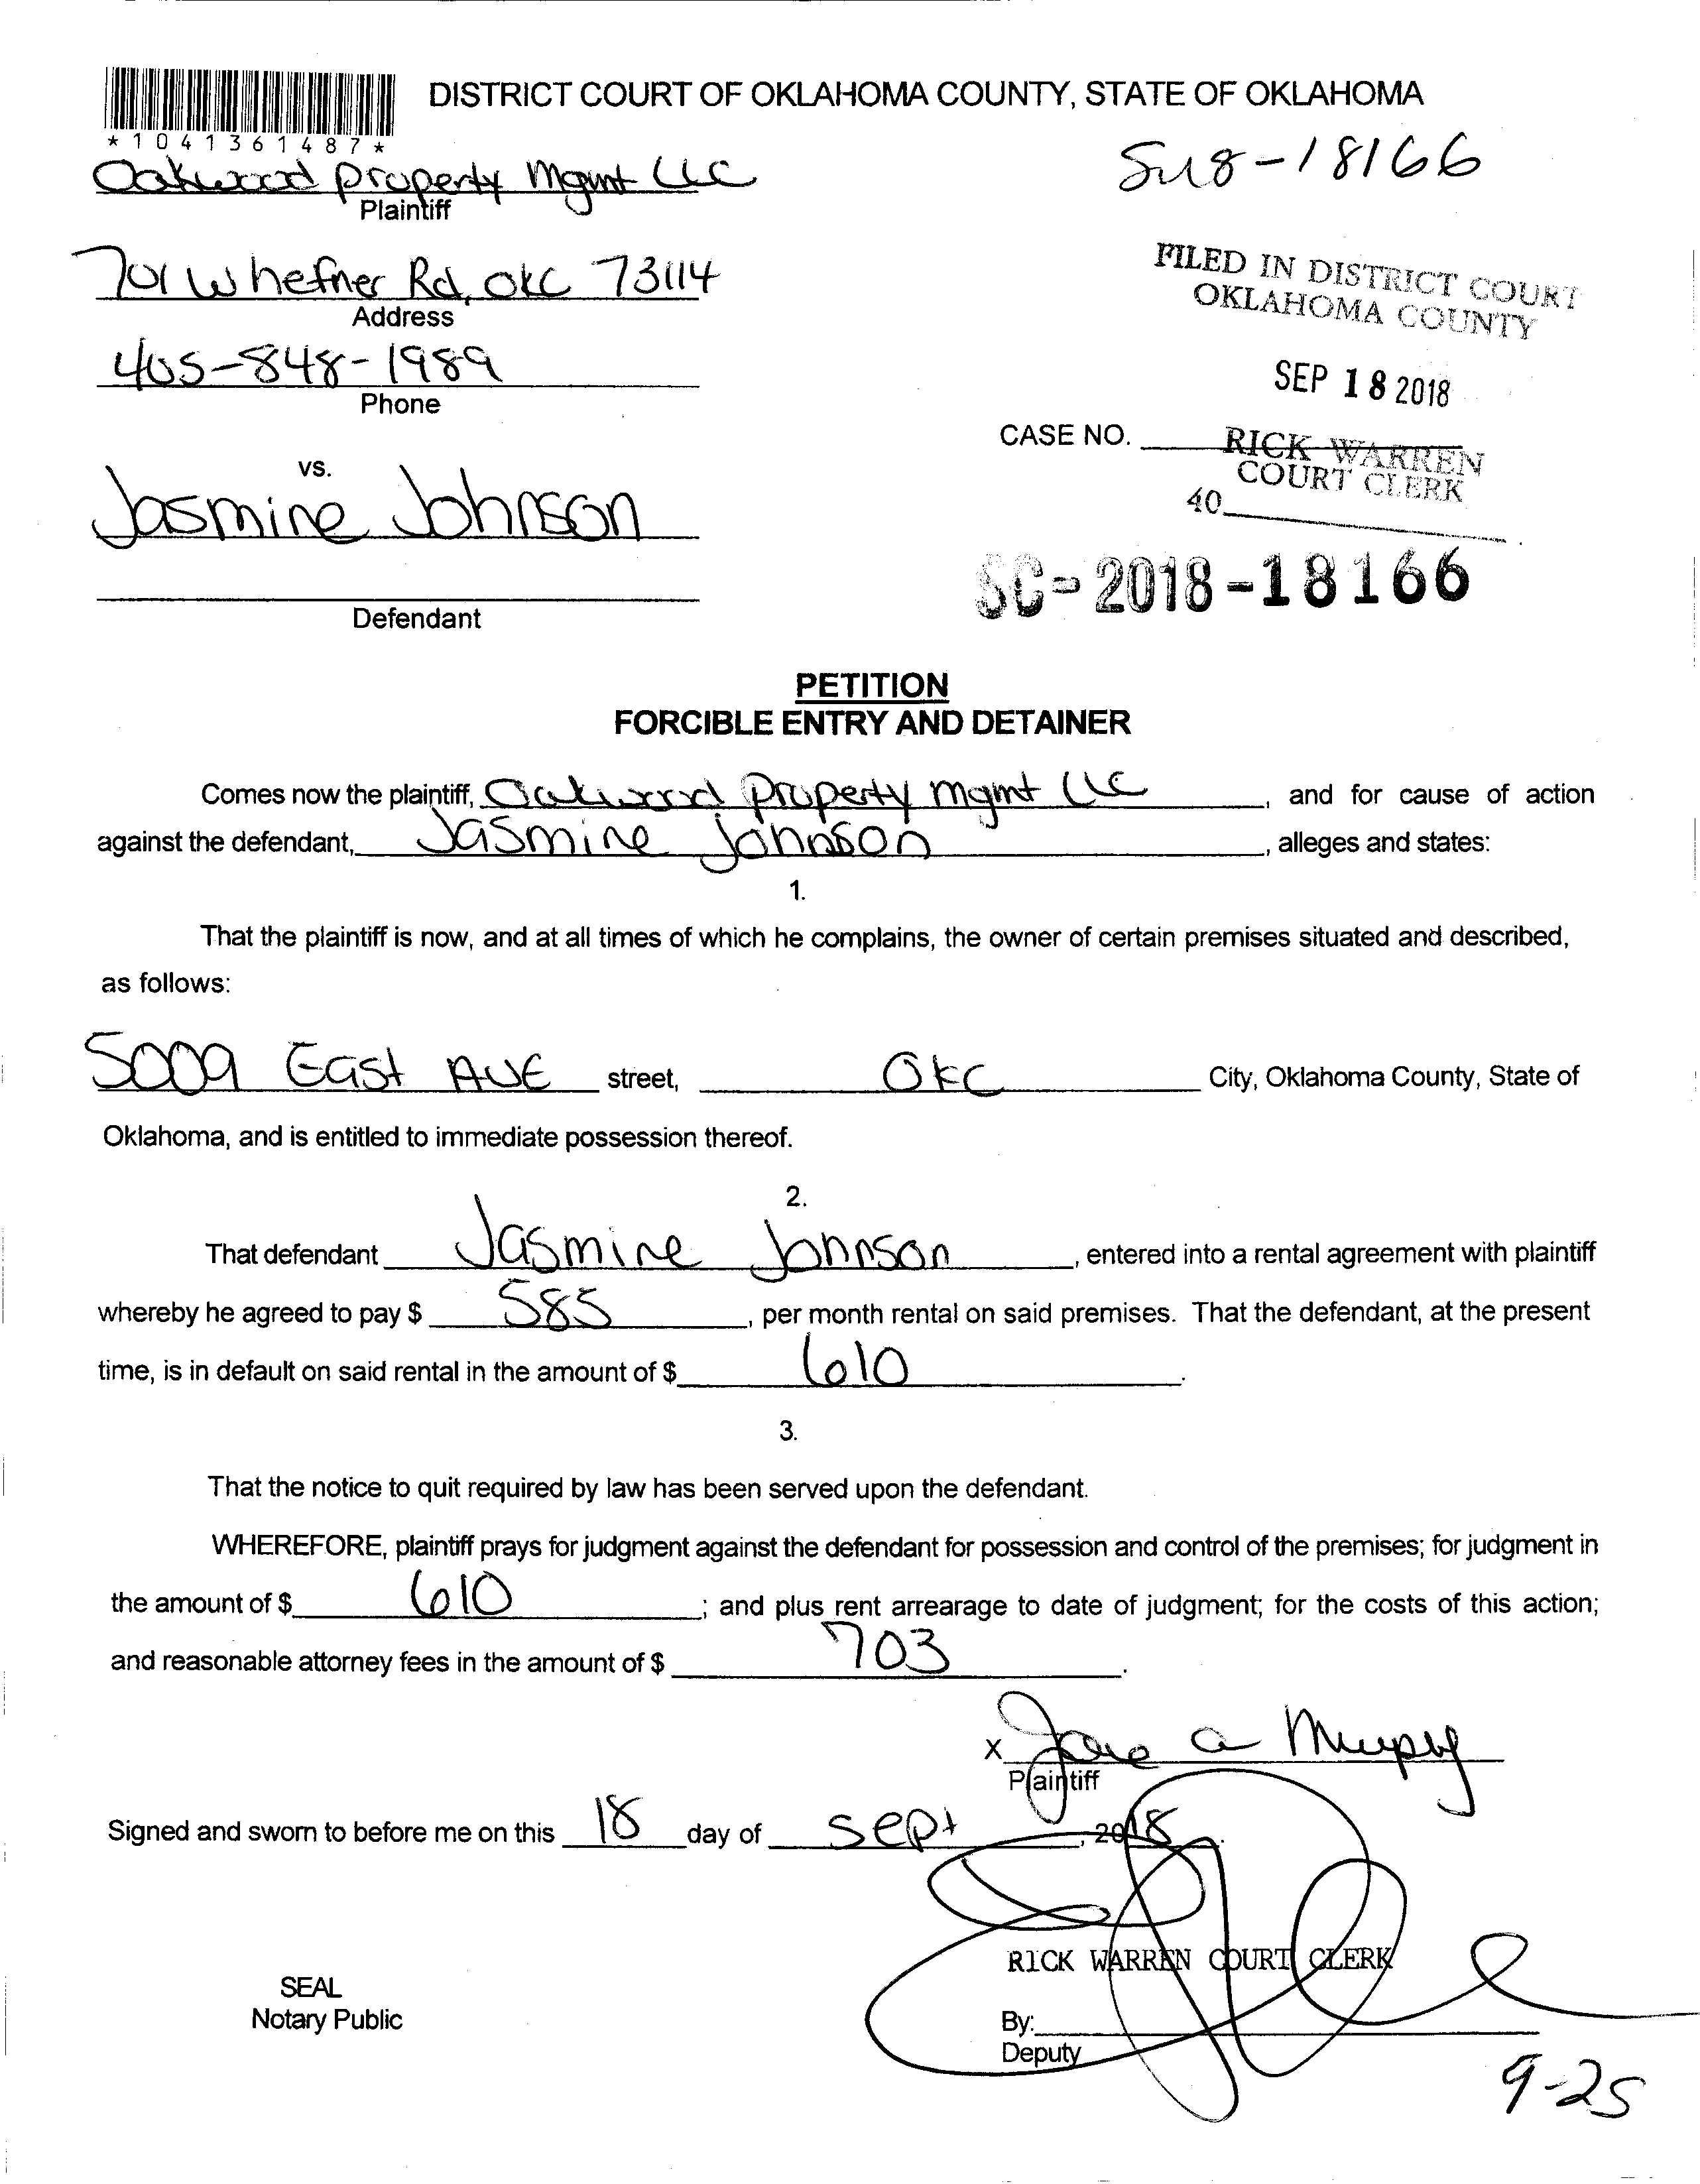 DISTRICT COURT OF OKLAHOMA COUNTY, STATE OF OKLAHOMA
*1041361487*
Oakwood Property Mgmt LLC
Plaintiff
18-18166
701 W hefner Rd, OKC 73114
Address
405-848-1989
Phone
FILED IN DISTRICT COURT
OKLAHOMA COUNTY
SEP 18 2018
CASE NO.
RICK WARREN
COURT CLERK
40
vs.
Jasmine Johnson
Defendant
SC-2018-18166
PETITION
FORCIBLE ENTRY AND DETAINER
Comes now the plaintiff, Oakwood Property Mgmt LLC, and for cause of action
against the defendant, Jasmine Johnson, alleges and states:
1.
That the plaintiff is now, and at all times of which he complains, the owner of certain premises situated and described,
as follows:
5009 East AVE street, OKC City, Oklahoma County, State of
Oklahoma, and is entitled to immediate possession thereof.
2.
That defendant Jasmine Johnson, entered into a rental agreement with plaintiff
whereby he agreed to pay $ 585, per month rental on said premises. That the defendant, at the present
time, is in default on said rental in the amount of $ 610.
3.
That the notice to quit required by law has been served upon the defendant.
WHEREFORE, plaintiff prays for judgment against the defendant for possession and control of the premises; for judgment in
the amount of $ 610; and plus rent arrearage to date of judgment; for the costs of this action;
and reasonable attorney fees in the amount of $ 703.
X a Murphy
Plaintiff
Signed and sworn to before me on this 18 day of Sept, 2018.
RICK WARREN COURT CLERK
SEAL
Notary Public
By:
Deputy
9-25